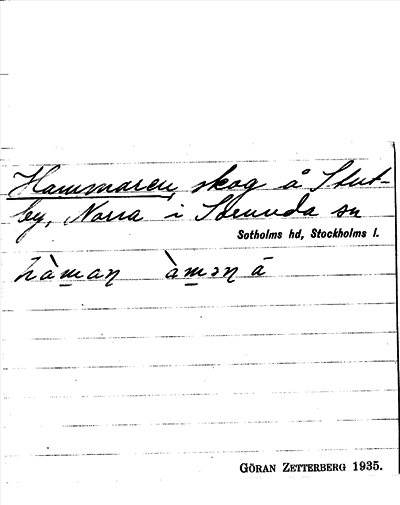 Hammaren, skog å Stut-
by, Norra i Sorunda sn
Sotholms hd, Stockholms l.
hàman àmən ā
GÖRAN ZETTERBERG 1935.